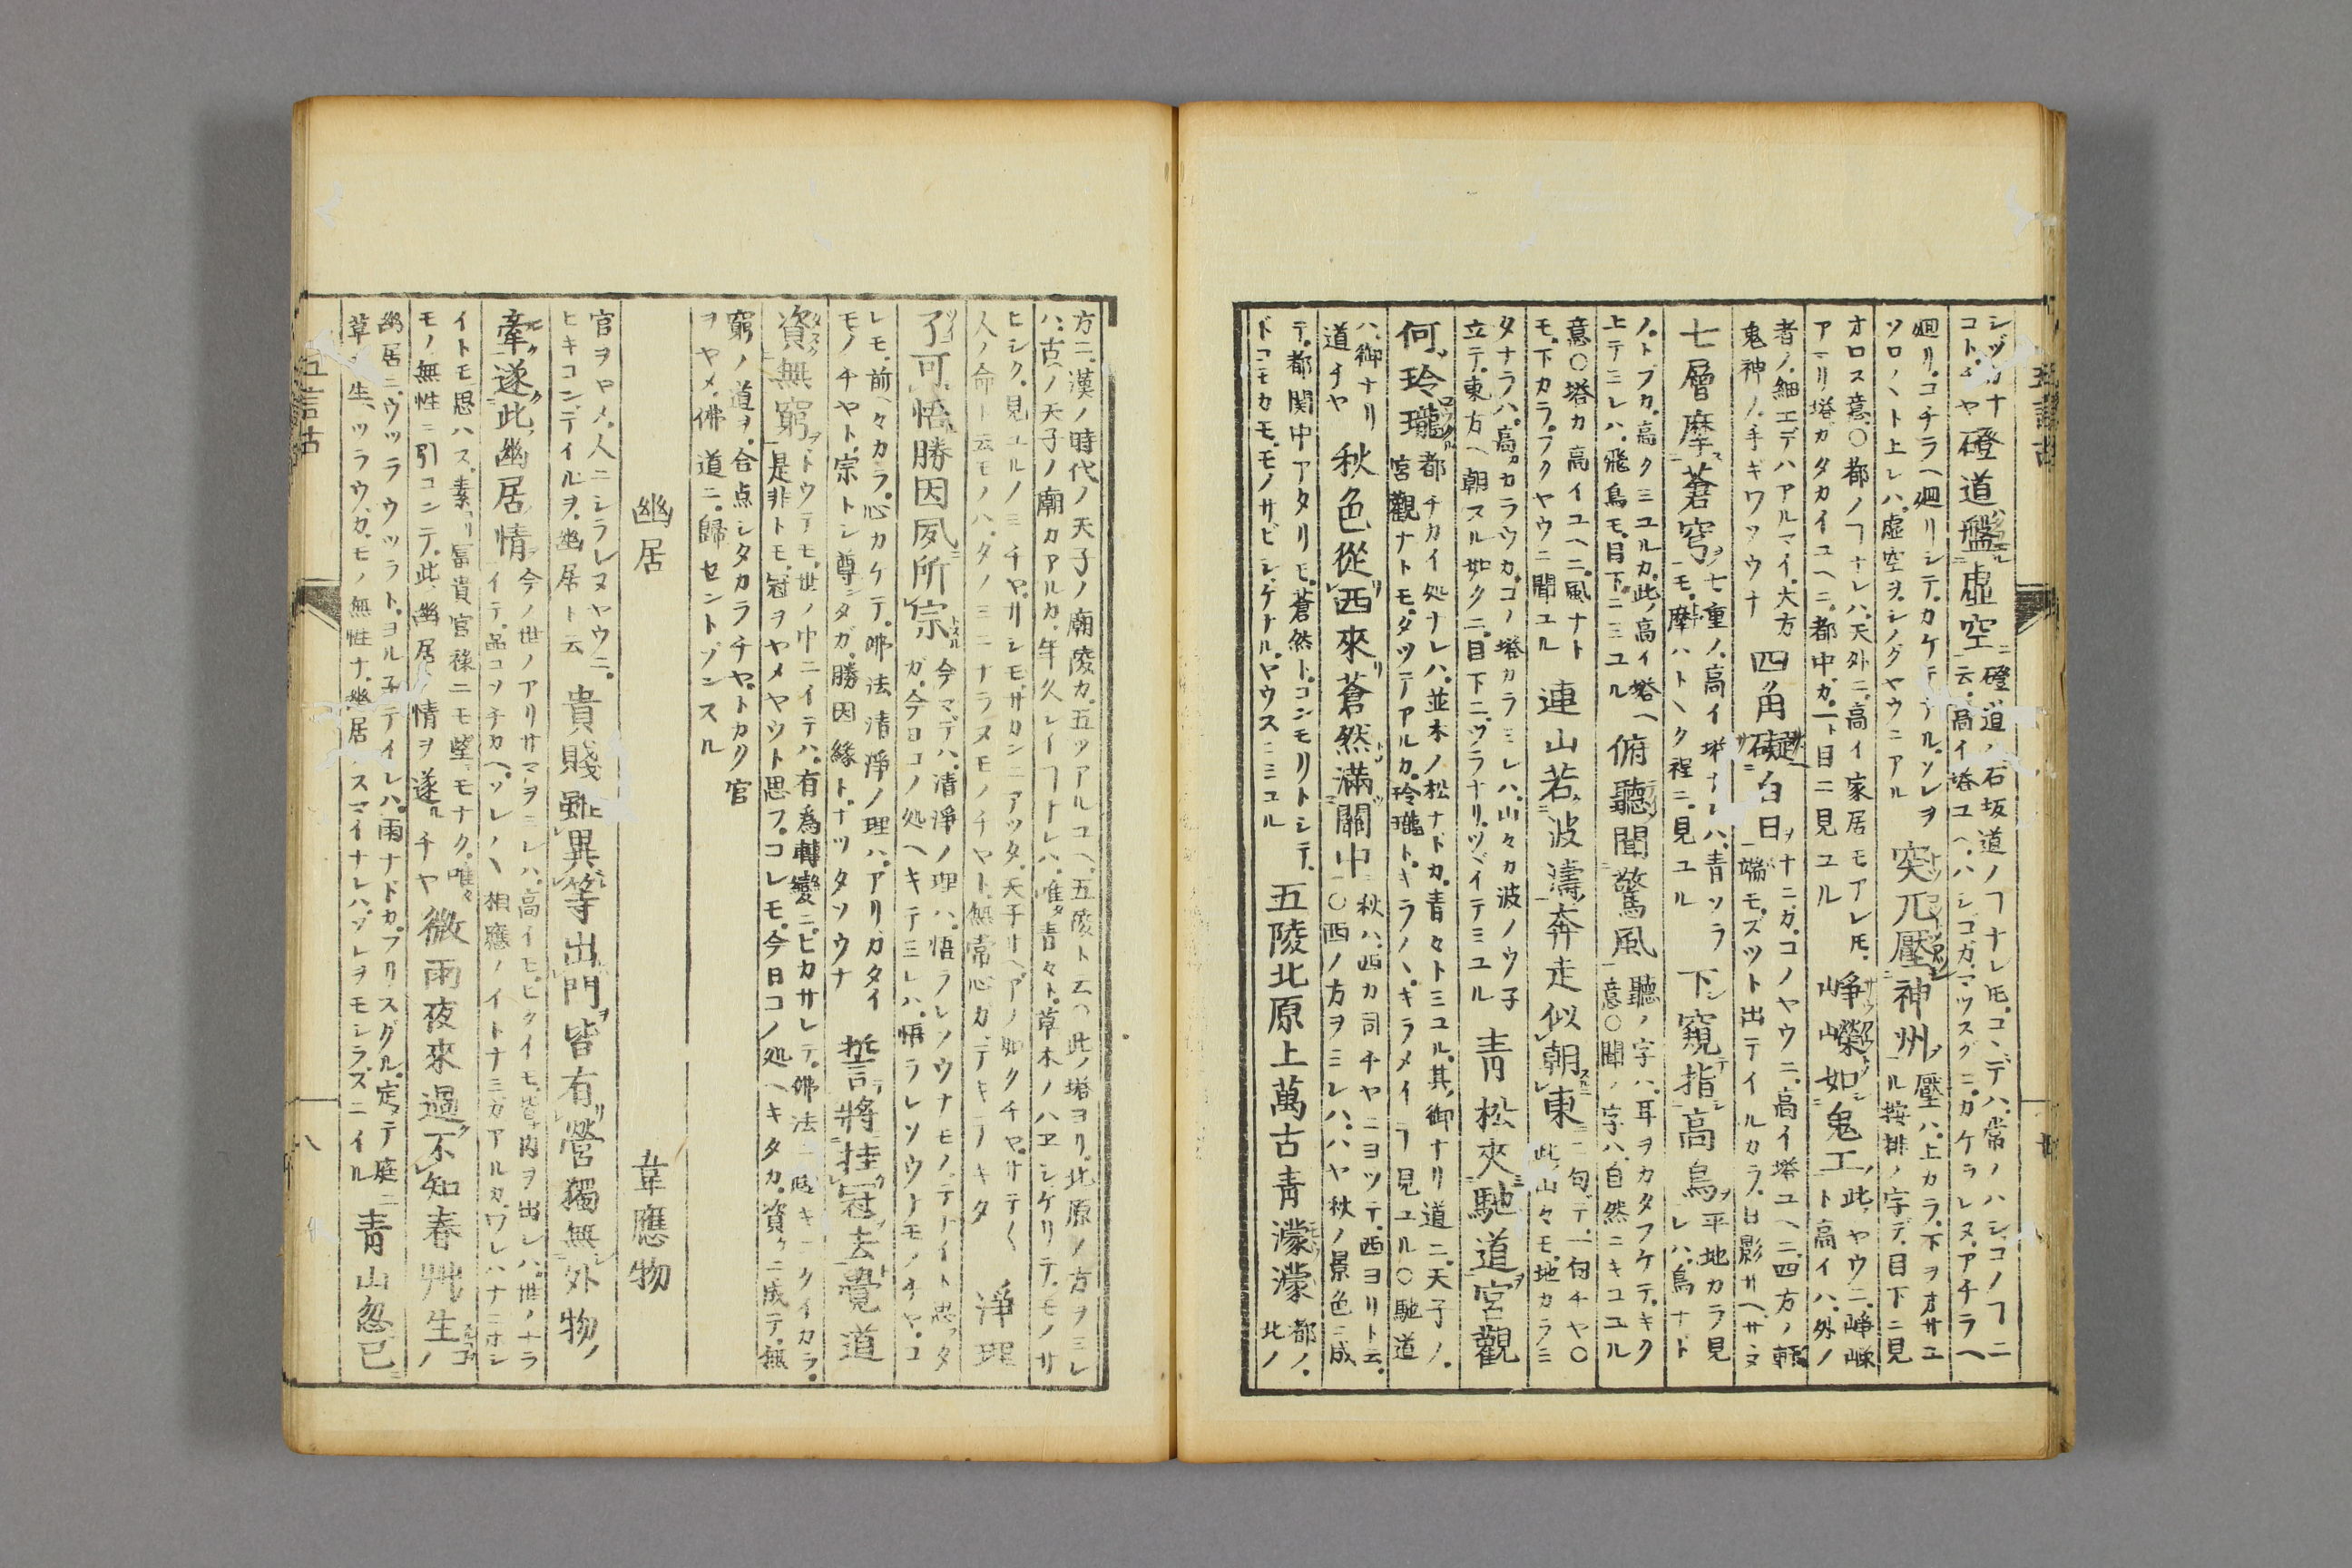 シヅカナ磴道盤虚空磴道ノ石坂道ノヿナレ𪜈コヽデハ常ノハシコノヿニ
コトチヤ云高イ塔ユヘハシゴガマツスグニカケラレヌアチラヘ
廻リコチラヘ廻リシテカケテアルソレヲ突兀壓神州壓ハ上カラ下ヲオサエ
ソロ〳〵ト上レハ虚空ヲシノグヤウニアルル按排ノ字デ目下ニ見
オロス意〇都ノヿナレハ天外ニ高イ家居モアレ𪜈崢嶸如鬼工此ヤウニ崢嶸
アマリ塔カタカイユヘニ都中ガ一ト目ニ見ユルト高イハ外ノ
者ノ細工デハアルマイ大方四角礙白日ナニガコノヤウニ高イ塔ユヘニ四方ノ
鬼神ノ手ギワツウナ端モズツト出テイルカラ日影サヘサヌ
七層摩蒼穹七重ノ高イ塔ナレハ青ソラ下窺指高鳥平地カラ見
モ摩ハトヽク程ニ見ユルレハ鳥ナド
ノトブカ高クミユルカ此高イ塔ヘ俯聽聞驚風聽ノ字ハ耳ヲカタフケテキク
上テミレハ飛鳥モ目下ニミユル意〇聞ノ字ハ自然ニキコユル
意〇塔カ高イユヘニ風ナト連山若波濤奔走似朝東二句デ一句チヤ〇
モ下カラフクヤウニ聞ユル此山々モ地カラミ
タナラハ高カラウカコノ塔カラミレハ山々カ波ノウ子青松夾馳道宮觀
立テ東方ヘ朝スル如クニ目下ニツラナリツヾイテミユル
何玲瓏都チカイ処ナレハ並木ノ松ナドカ青々トミユル其御ナリ道ニ天子ノ
宮觀ナトモタツテアルカ玲瓏トキラ〳〵キラメイヿ見ユル〇馳道
ハ御ナリ秋色從西來蒼然滿關中秋ハ西カ司チヤニヨツテ西ヨリト云
道チヤ〇西ノ方ヲミレハハヤ秋ノ景色ニ成
テ都関中アタリモ蒼然トコンモリトシテ五陵北原上萬古青濛濛都ノ
ドコモカモモノサビシゲナルヤウスニミユル北ノ
方ニ漢ノ時代ノ天子ノ廟陵カ五ツアルユヘ五陵ト云〇此塔ヨリ北原ノ方ヲミレ
ハ古ノ天子ノ廟カアルカ年久レイヿトレハ唯青々ト草木ノハヱシケリテモノサ
ヒシク見ユルノミチヤ
人ノ命ト云モノハタノミニナラヌモノチヤト無常心ガデキテキタ淨理
了可悟勝因夙所宗今マデハ清淨ノ理ハ悟ラレソウナモノテナイト思ツタ
ガ今日コノ処ヘキテミレハ悟ラレソウナモノチヤコ
レモ前々カラ心カケテ佛法清淨ノ理ハアリカタイ誓將挂冠去覺道
モノチヤト宗トシ尊ダガ勝因縁トナツタソウナ
資無窮トウテモ世ノ中ニイテハ有為轉變ニヒカサレテ佛法ニ
是非トモ冠ヲヤメヤウト思フコレモ今日コノ処ヘキタカ資ケニ成テ無
窮ノ道ヲ合点シタカラチヤトカク官
ヲヤメ佛道ニ歸セントゾンスル
幽居　韋應物
官ヲヤメ人ニシラレヌヤウニ貴賤雖異等出門皆有營獨無外物
ヒキコンデイルヲ幽居ト云
牽遂此幽居情今ノ世ノアリサマヲミレハ高イモヒクイモ皆門ヲ出レハ世ノナラ
イテ品コソチカヘソレ〳〵相應ノイトナミガアルカワレハナニオシ
イトモ思ハス素リ冨貴官祿ニモ望モナク唯々微雨夜來過不知春艸生
モノ無性ニ引コンテ此幽居ノ情ヲ遂ルチヤ
幽居ニウツラウツラトヨル子テイレハ雨ナドカフリスグル定テ庭ニ青山忽已
草ノ生ツラウカモノ無性ナ幽居スマイナレハソレヲモシラズニイル
五言古
八